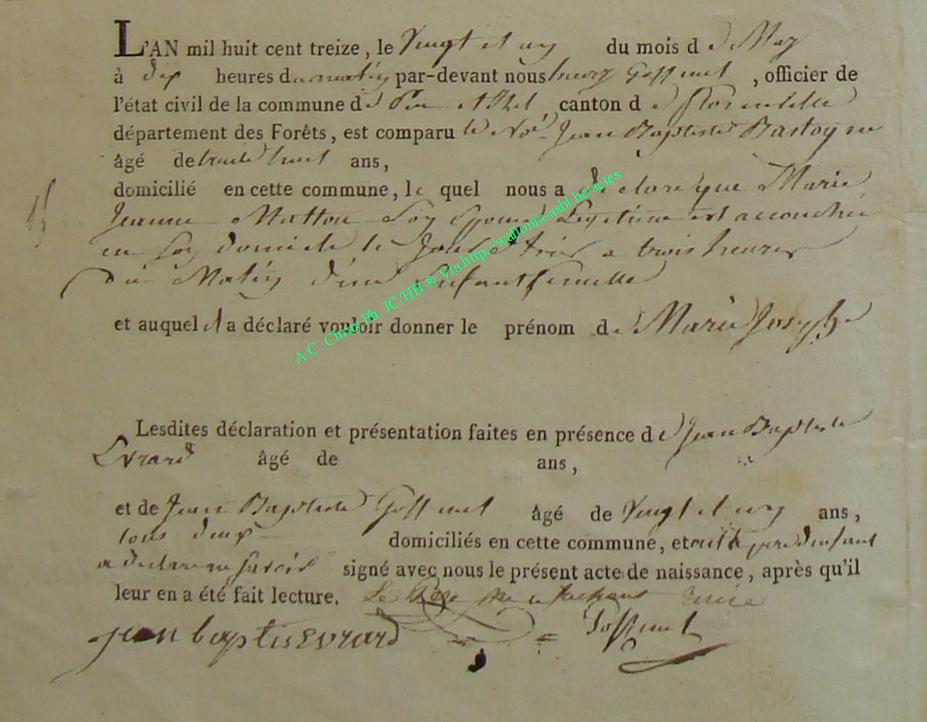 L'AN mil huit cent treize, le Vingt et un du mois d e May
à dix heures du matin par-devant nous henry Goffinet, officier de
l'état civil de la commune d e Pin et Izel canton d e florenville
département des Forêts, est comparu le Jean Baptiste Bastogne
âgé de trente huit ans,
domicilié en cette commune, le quel nous a déclaré que Marie
Jeanne Motton Son Epouse Legitime est accouchée
en son domicile le Jour à trois heures
du Matin d'un enfant femelle
et auquel il a déclaré vouloir donner le prénom d e Marie Josephe
Lesdites déclaration et présentation faites en présence d e Jean Baptiste
Evrard âgé de ans,
et de Jean Baptiste Goffinet âgé de Vingt et un ans,
tous deux domiciliés en cette commune, et ont le pere d'enfant
a declare ne savoir signé avec nous le présent acte de naissance, après qu'il
leur en a été fait lecture. Le
jean baptis EVrard Goffinet
A.C. Chiny Ph. JC/HB @ Via http://wallonia-asbl.be/actes